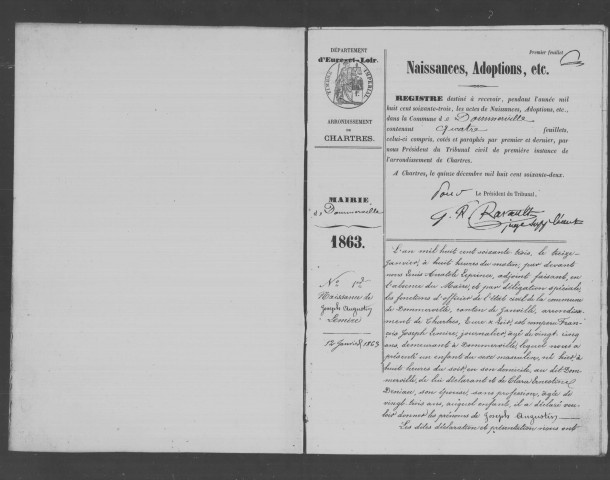 Premier feuillet
DÉPARTEMENT
d'Eure-et-Loir.
TIMBRE IMPÉRIAL
ARRONDISSEMENT
DE
CHARTRES.
MAIRIE
de Dommerville
1863.
N° 1er
Naissance de
Joseph Augustin
Lemire
12 Janvier 1863
Naissances, Adoptions, etc.
REGISTRE destiné à recevoir, pendant l'année mil
huit cent soixante-trois, les actes de Naissances, Adoptions, etc.,
dans la Commune d e Dommerville
contenant quatre feuillets,
celui-ci compris, cotés et paraphés par premier et dernier, par
nous Président du Tribunal civil de première instance de
l'arrondissement de Chartres.
A Chartres, le quinze décembre mil huit cent soixante-deux.
Pour Le Président du Tribunal,
juge supp
L'an mil huit cent soixante trois, le treize
janvier, à huit heures du matin, par devant
nous Denis Anatole Leprince, adjoint faisant, en
l'absence du Maire, et par délégation spéciale,
les fonctions d'officier de l'état civil de la commune
de Dommerville, canton de Janville, arrondisse-
ment de Chartres, Eure & Loir, est comparu Fran-
çois Joseph Lemire, journalier, âgé de vingt cinq
ans, demeurant à Dommerville, lequel nous a
présenté un enfant du sexe masculin, né hier, à
huit heures du soir, en son domicile, au dit Dom-
merville, de lui déclarant et de Clara Ernestine
Deniau, son épouse, sans profession, âgée de
vingt trois ans, auquel enfant, il a déclaré vou-
loir donner les prénoms de Joseph Augustin
Les dites déclaration et présentation nous ont